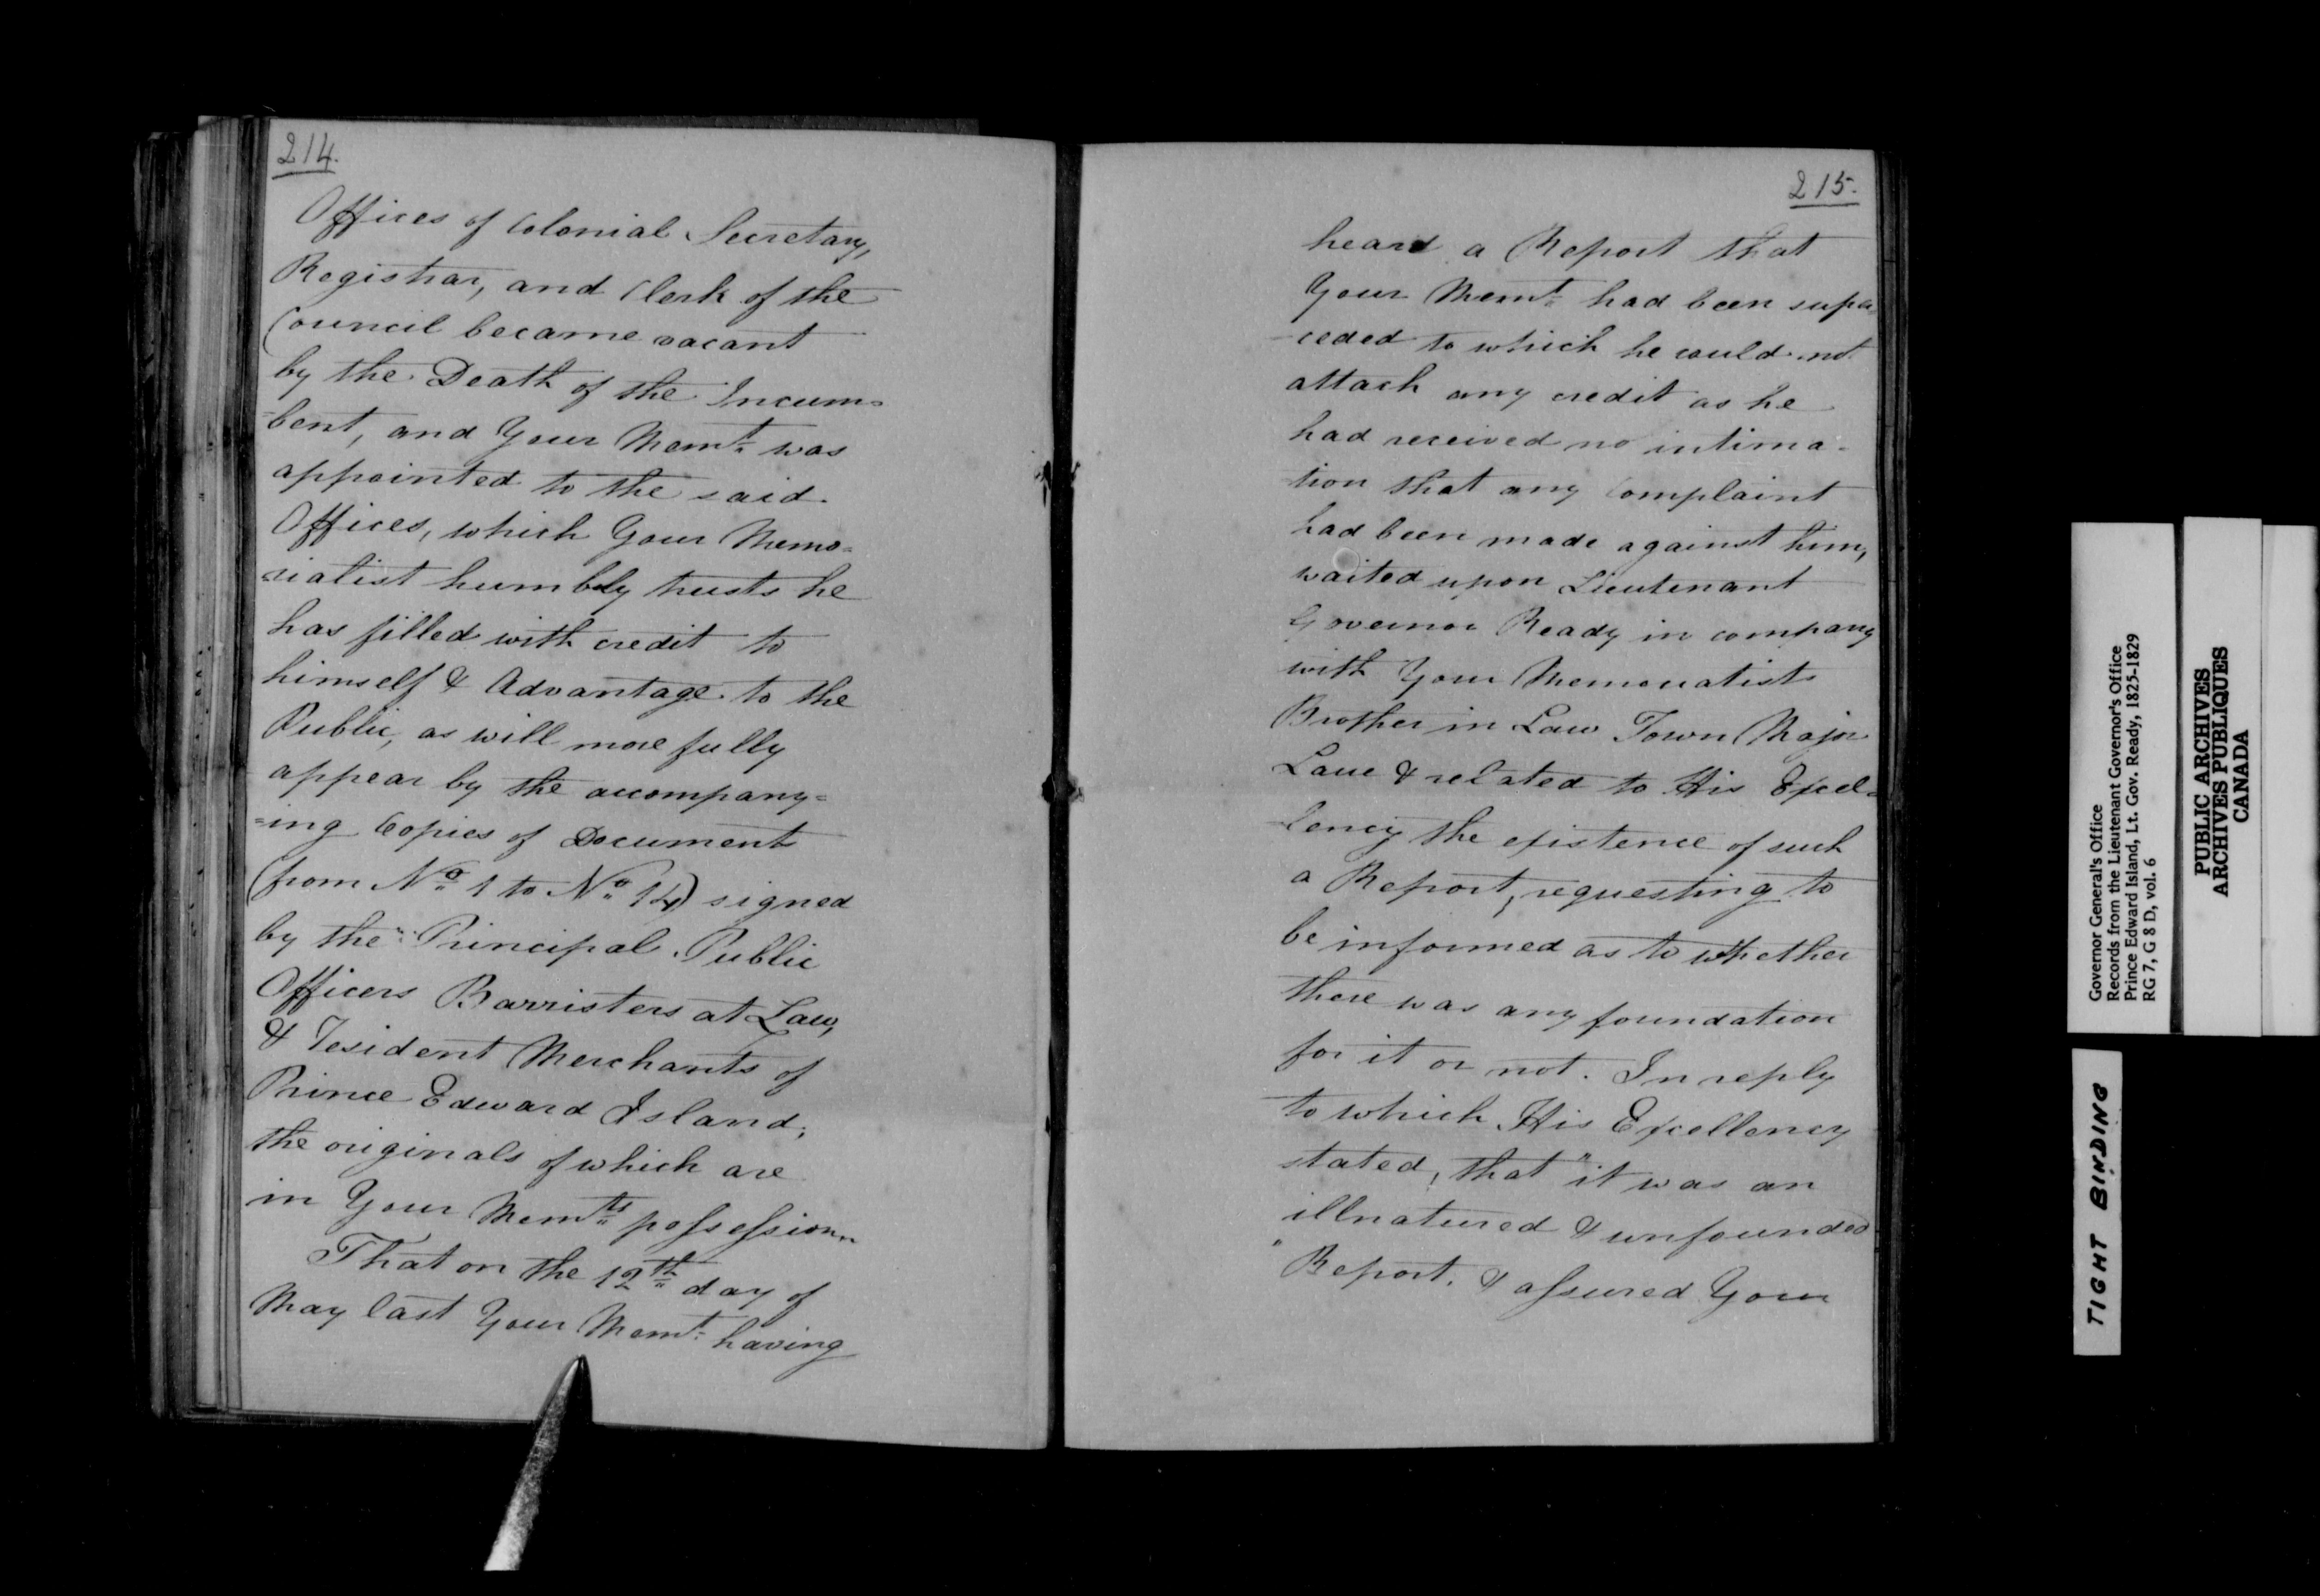 214.
Offices of Colonial Secretary,
Registrar, and Clerk of the
Council became vacant
by the Death of the Incum=
=bent, and Your Memt. was
appointed to the said
Offices, which Your Memo=
=rialist humbly trusts he
has filled with credit to
himself & Advantage to the
Public, as will more fully
appear by the accompany=
=ing Copies of Documents
(from No. 1 to No. 14) signed
by the Principal Public
Officers Barristers at Law,
& Resident Merchants of
Prince Edward Island;
the originals of which are
in Your Memts. possession.
That on the 12th day of
May last Your Memt. having
215.
heard a Report that
Your Memt. had been super
-ceded to which he could not
attach any credit as he
had received no intima-
tion that any Complaint
had been made against him,
waited upon Lieutenant
Governor Ready in company
with Your Memorialists
Brother in Law Town Major
Lane & related to His Excel=
-lency the existence of such
a Report, requesting to
be informed as to whether
there was any foundation
for it or not. In reply
to which His Excellency
stated, that "it was an
illnatured & unfounded
"Report. & assured Your
Governor General's Office
Records from the Lieutenant Governor's Office
Prince Edward Island, Lt. Gov. Ready, 1825-1829
RG 7, G 8 D, vol. 6
PUBLIC ARCHIVES
ARCHIVES PUBLIQUES
CANADA
TIGHT BINDING